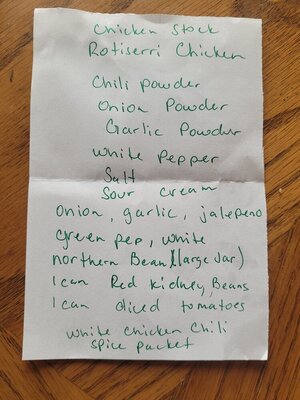 Chicken Stock
Rotiserri Chicken
Chili powder
Onion Powder
Garlic Powder
White Pepper
Salt
Sour cream
Onion, garlic, jalepeno
green pep, white
northern Bean (large Jar)
1 can Red kidney, Beans
1 can diced tomatoes
White Chicken Chili
Spice packet